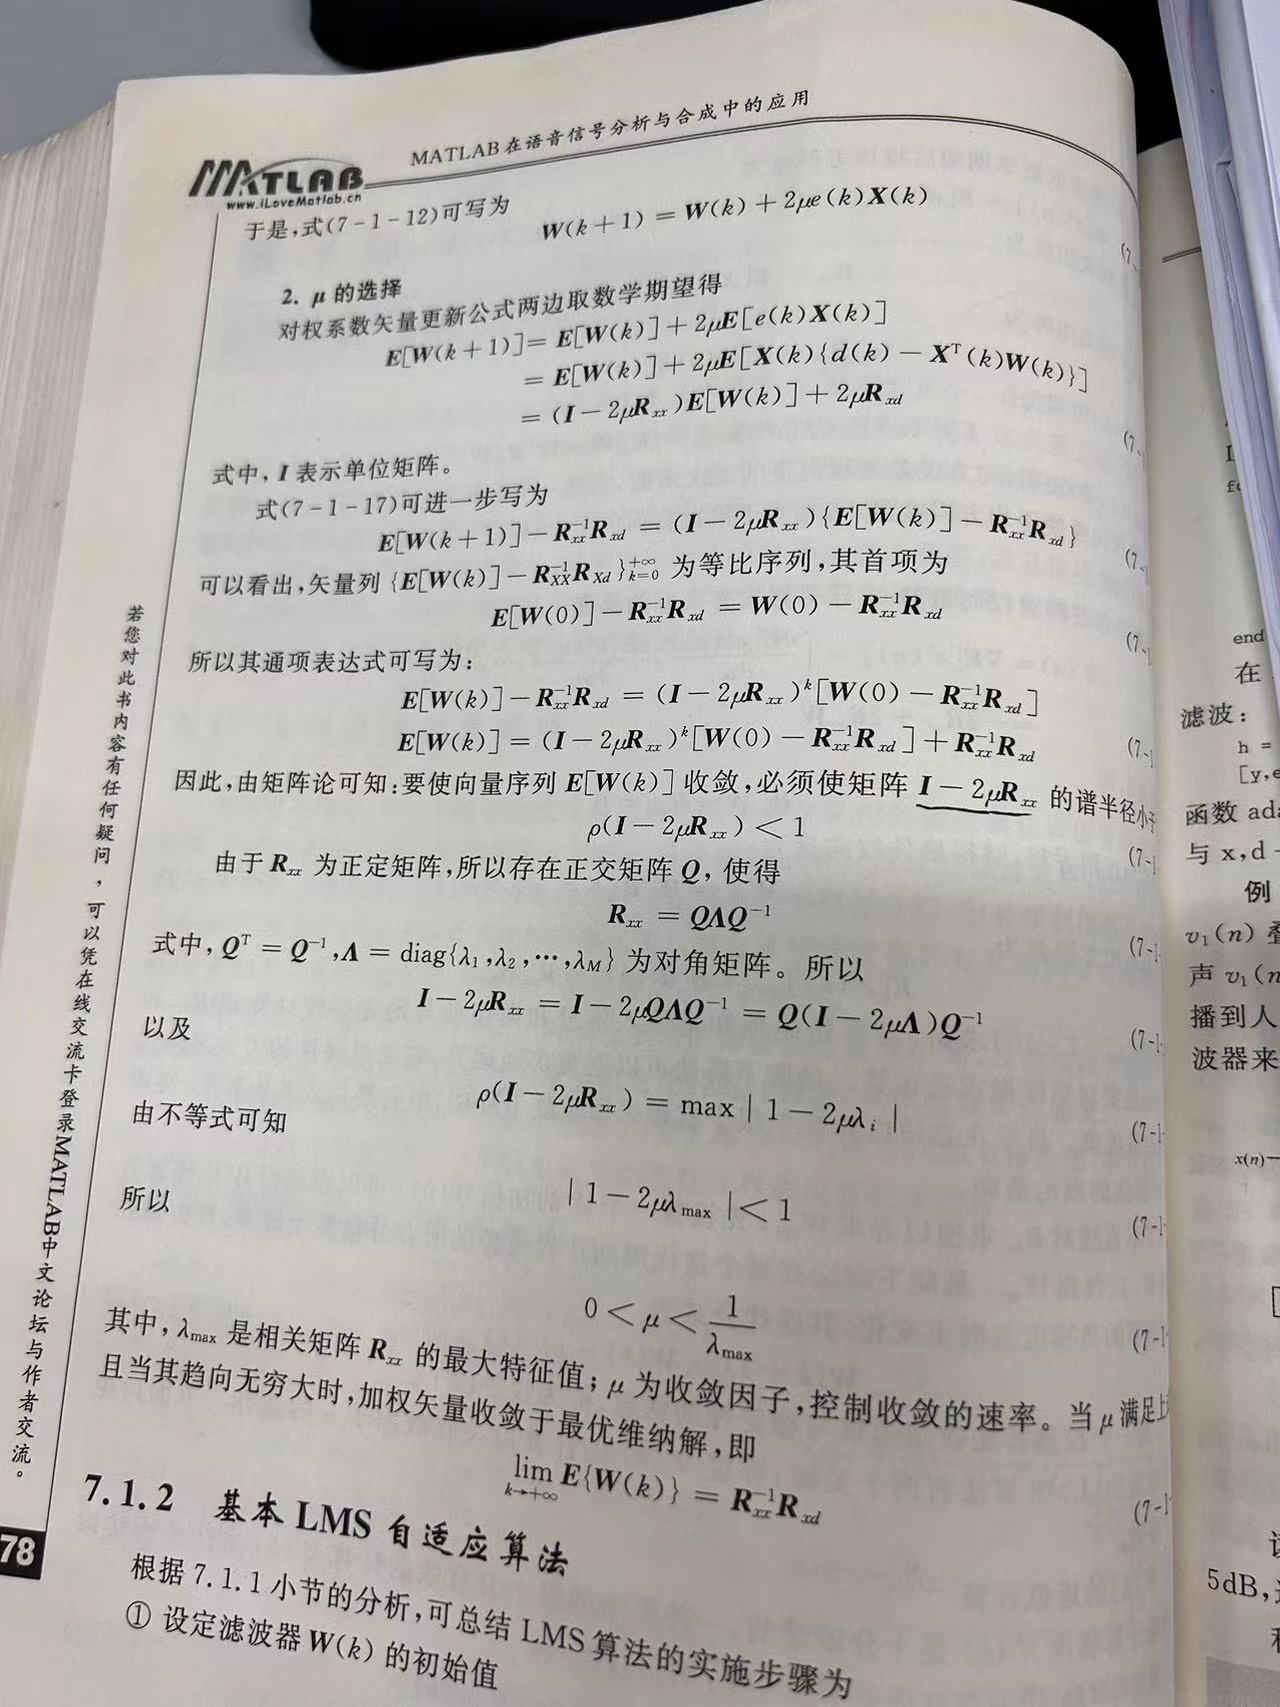 MATLAB在语音信号分析与合成中的应用
MATLAB
www.iLoveMatlab.cn
于是,式(7-1-12)可写为
W(k+1) = W(k) + 2μe(k)X(k)
(7-
2. μ的选择
对权系数矢量更新公式两边取数学期望得
E[W(k+1)] = E[W(k)] + 2μE[e(k)X(k)]
= E[W(k)] + 2μE[X(k){d(k) - Xᵀ(k)W(k)}]
= (I - 2μRₓₓ)E[W(k)] + 2μR_xd
(7-
式中, I 表示单位矩阵。
式(7-1-17)可进一步写为
E[W(k+1)] - Rₓₓ⁻¹R_xd = (I - 2μRₓₓ){E[W(k)] - Rₓₓ⁻¹R_xd}
(7-
可以看出,矢量列 {E[W(k)] - R_XX⁻¹R_Xd}_{k=0}^{+∞} 为等比序列,其首项为
E[W(0)] - Rₓₓ⁻¹R_xd = W(0) - Rₓₓ⁻¹R_xd
(7-
所以其通项表达式可写为:
E[W(k)] - Rₓₓ⁻¹R_xd = (I - 2μRₓₓ)ᵏ[W(0) - Rₓₓ⁻¹R_xd]
E[W(k)] = (I - 2μRₓₓ)ᵏ[W(0) - Rₓₓ⁻¹R_xd] + Rₓₓ⁻¹R_xd
(7-1
因此,由矩阵论可知:要使向量序列 E[W(k)] 收敛,必须使矩阵 I - 2μRₓₓ 的谱半径小于
ρ(I - 2μRₓₓ) < 1
(7-1-
由于 Rₓₓ 为正定矩阵,所以存在正交矩阵 Q, 使得
Rₓₓ = QΛQ⁻¹
(7-1-
式中, Qᵀ = Q⁻¹, Λ = diag{λ₁,λ₂,…,λ_M} 为对角矩阵。所以
I - 2μRₓₓ = I - 2μQΛQ⁻¹ = Q(I - 2μΛ)Q⁻¹
(7-1-
以及
ρ(I - 2μRₓₓ) = max | 1 - 2μλᵢ |
(7-1-
由不等式可知
| 1 - 2μλ_max | < 1
(7-1-
所以
0 < μ < 1/λ_max
(7-1-
其中, λ_max 是相关矩阵 Rₓₓ 的最大特征值; μ 为收敛因子, 控制收敛的速率。当 μ 满足上
且当其趋向无穷大时,加权矢量收敛于最优维纳解,即
lim_{k→+∞} E{W(k)} = Rₓₓ⁻¹R_xd
(7-1
7.1.2 基本 LMS 自适应算法
根据 7.1.1 小节的分析,可总结 LMS 算法的实施步骤为
① 设定滤波器 W(k) 的初始值
若您对此书内容有任何疑问,可以凭在线交流卡登录MATLAB中文论坛与作者交流。
78
end
在
滤波:
h =
[y,e
函数 ada
与 x,d
例
v₁(n) 叠
声 v₁(n
播到人
波器来
x(n)
5dB,